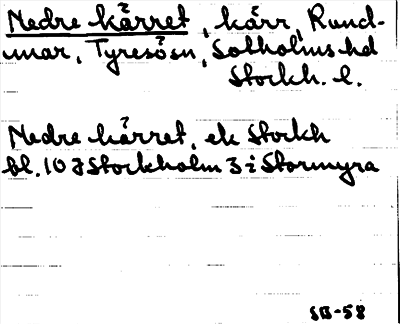 Nedre kärret, kärr, Rund-
mar, Tyresö sn, Sotholms hd
Stockh. l.
Nedre kärret, ek Stockh
bl. 10 J Stockholm 3 i Stormyra
SB-58